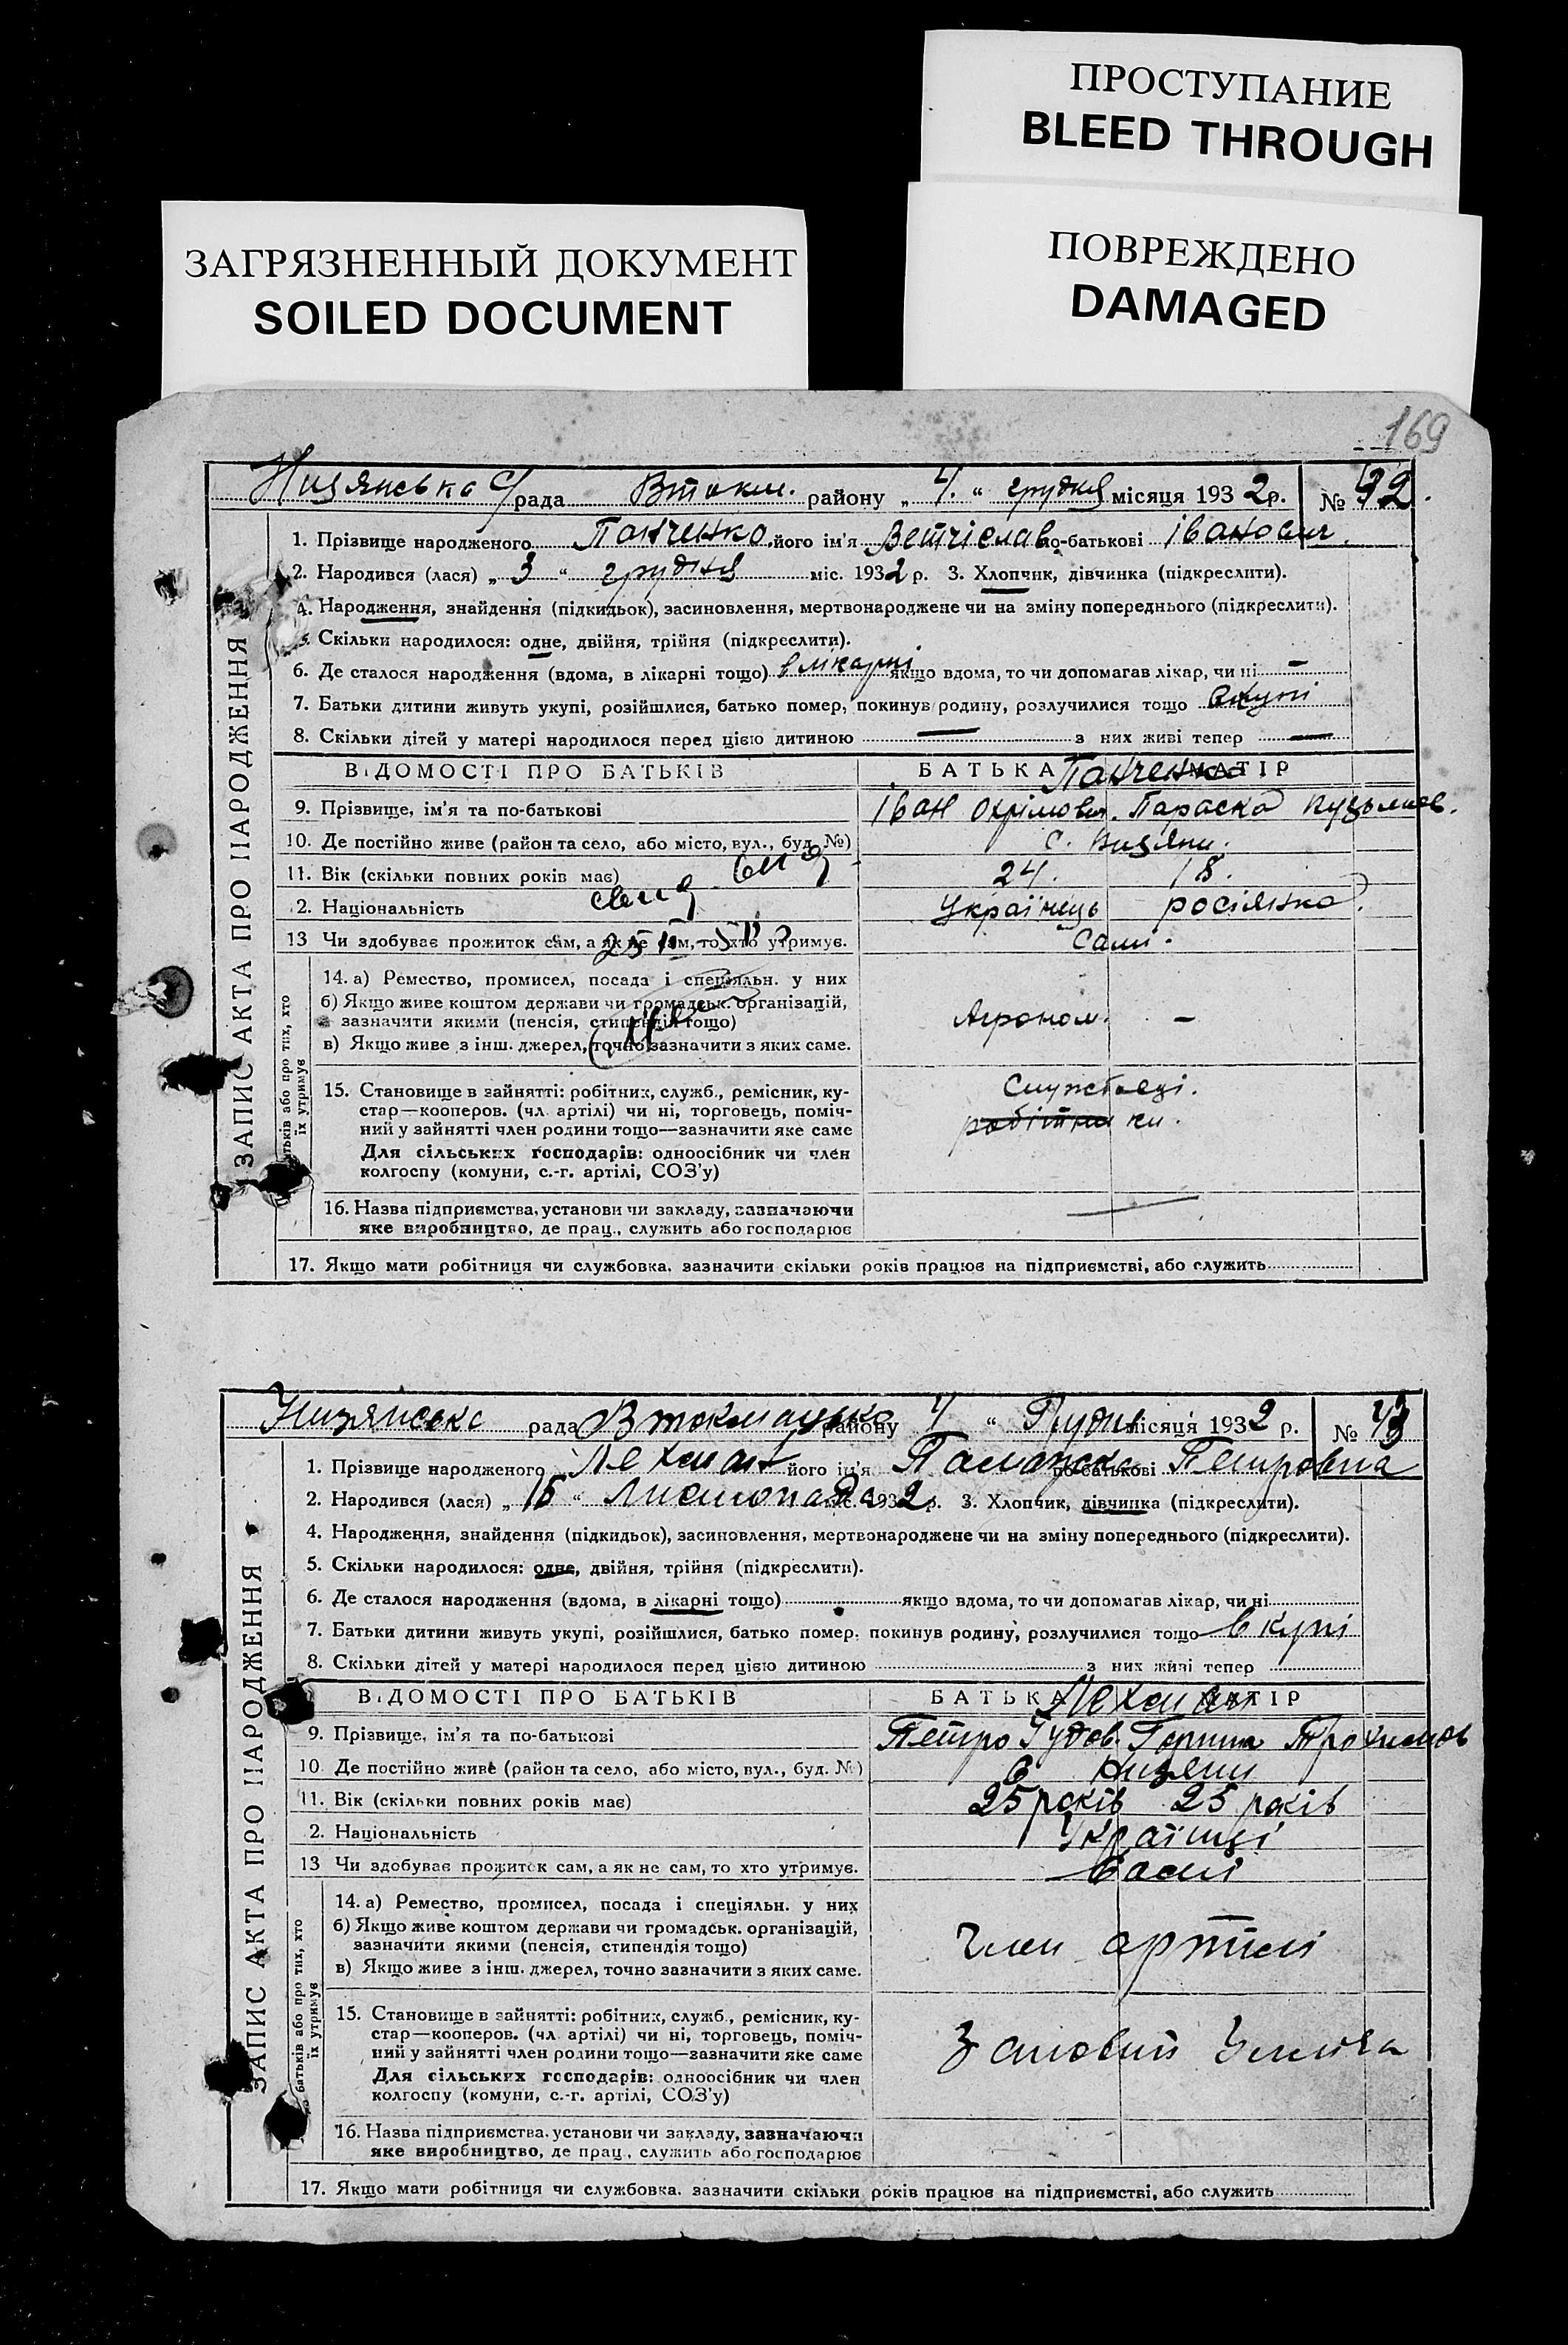 ПРОСТУПАНИЕ
BLEED THROUGH
ЗАГРЯЗНЕННЫЙ ДОКУМЕНТ
SOILED DOCUMENT
ПОВРЕЖДЕНО
DAMAGED
169
рада Втокм. району „ 4. “ грудня місяця 1932 р. №
1. Прізвище народженого Панченко його ім'я по-батькові Іванович.
2. Народився (лася) „ 3 “ грудня міс. 1932 р. 3. Хлопчик, дівчинка (підкреслити).
4. Народження, знайдення (підкидьок), засиновлення, мертвонароджене чи на зміну попереднього (підкреслити).
Скільки народилося: одне, двійня, трійня (підкреслити).
6. Де сталося народження (вдома, в лікарні тощо) в лікарні якщо вдома, то чи допомагав лікар, чи ні –
7. Батьки дитини живуть укупі, розійшлися, батько помер, покинув родину, розлучилися тощо вкупі
8. Скільки дітей у матері народилося перед цією дитиною — з них живі тепер —
ВІДОМОСТІ ПРО БАТЬКІВ БАТЬКА Панченко МАТІР
9. Прізвище, ім'я та по-батькові Іван Охрімович. Параска Кузьмов.
10. Де постійно живе (район та село, або місто, вул., буд. №) с.
11. Вік (скільки повних років має) 24. 18.
2. Національність Українець росіянка
13 Чи здобуває прожиток сам, а як не сам, то хто утримує. Сами.
14. а) Ремество, промисел, посада і спеціяльн. у них
б) Якщо живе коштом держави чи громадськ. організацій,
зазначити якими (пенсія, стипендія тощо) Агроном. –
в) Якщо живе з інш. джерел, точно зазначити з яких саме.
15. Становище в зайнятті: робітник, служб., ремісник, ку- Службовці.
стар—кооперов. (чл. артілі) чи ні, торговець, поміч- робітники.
ний у зайнятті член родини тощо—зазначити яке саме
Для сільських господарів: одноосібник чи член
колгоспу (комуни, с.-г. артілі, СОЗ'у)
16. Назва підприємства, установи чи закладу, зазначаючи
яке виробництво, де прац., служить або господарює
17. Якщо мати робітниця чи службовка, зазначити скільки років працює на підприємстві, або служить
ЗАПИС АКТА ПРО НАРОДЖЕННЯ
батьків або про тих, хто
їх утримує
рада Втокмацько району 4 “ Грудня місяця 1932 р. №
1. Прізвище народженого його ім'я по-батькові Петровна
2. Народився (лася) „ 15 “ Листопада міс. 1932 р. 3. Хлопчик, дівчинка (підкреслити).
4. Народження, знайдення (підкидьок), засиновлення, мертвонароджене чи на зміну попереднього (підкреслити).
5. Скільки народилося: одне, двійня, трійня (підкреслити).
6. Де сталося народження (вдома, в лікарні тощо) якщо вдома, то чи допомагав лікар, чи ні
7. Батьки дитини живуть укупі, розійшлися, батько помер, покинув родину, розлучилися тощо в купі
8. Скільки дітей у матері народилося перед цією дитиною з них живі тепер
ВІДОМОСТІ ПРО БАТЬКІВ БАТЬКА МАТІР
9. Прізвище, ім'я та по-батькові Петро
10. Де постійно живе (район та село, або місто, вул., буд. №)
11. Вік (скільки повних років має) 25 років 25 років
2. Національність Українці
13 Чи здобуває прожиток сам, а як не сам, то хто утримує. Сами
14. а) Ремество, промисел, посада і спеціяльн. у них
б) Якщо живе коштом держави чи громадськ. організацій,
зазначити якими (пенсія, стипендія тощо) Член артілі
в) Якщо живе з інш. джерел, точно зазначити з яких саме.
15. Становище в зайнятті: робітник, служб., ремісник, ку-
стар—кооперов. (чл. артілі) чи ні, торговець, поміч-
ний у зайнятті член родини тощо—зазначити яке саме
Для сільських господарів: одноосібник чи член
колгоспу (комуни, с.-г. артілі, СОЗ'у)
16. Назва підприємства, установи чи закладу, зазначаючи
яке виробництво, де прац., служить або господарює
17. Якщо мати робітниця чи службовка, зазначити скільки років працює на підприємстві, або служить
ЗАПИС АКТА ПРО НАРОДЖЕННЯ
батьків або про тих, хто
їх утримує